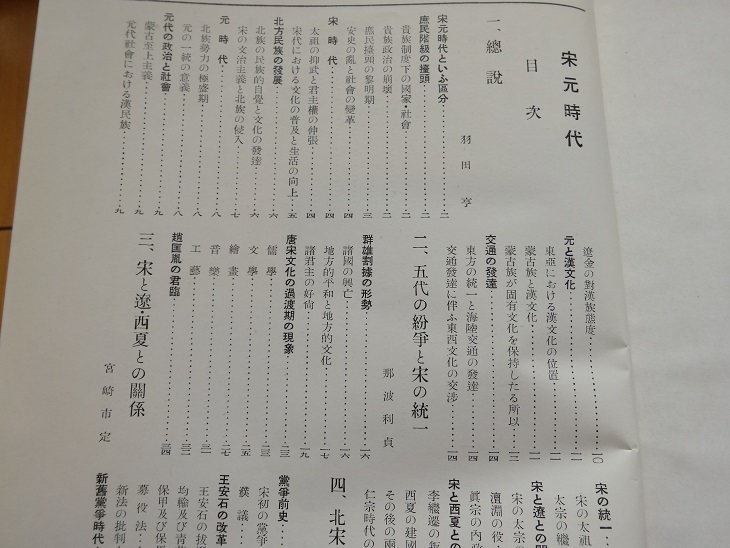 宋元時代
目次
一、總說
羽田亨
宋元時代といふ區分……二
庶民階級の擡頭……二
貴族制度下の國家・社會……二
貴族政治の崩壞……二
庶民擡頭の黎明期……三
安史の亂と社會の變革……四
宋時代……四
太祖の抑武と君主權の伸張……四
宋代における文化の普及と生活の向上……五
北方民族の發展……六
北族の民族的自覺と文化の發達……六
宋の文治主義と北族の侵入……七
元時代……八
北族勢力の極盛期……八
元の一統の意義……八
元代の政治と社會……九
蒙古至上主義……九
元代社會における漢民族……九
遼金の對漢族態度……一〇
元と漢文化……一一
東亞における漢文化の位置……一一
蒙古族と漢文化……一一
蒙古族が固有文化を保持したる所以……一三
交通の發達……一四
東方の統一と海陸交通の發達……一四
交通發達に伴ふ東西文化の交涉……一四
二、五代の紛爭と宋の統一
那波利貞
群雄割據の形勢……一六
諸國の興亡……一六
地方的平和と地方的文化……一七
諸君主の好尙……一九
唐宋文化の過渡期の現象……二三
儒學……二三
文學……二五
繪畫……二七
音樂……三一
工藝……三二
趙匡胤の君臨……三四
三、宋と遼・西夏との關係
宮崎市定
宋の統一
宋の太祖
太宗の繼
宋と遼との關
宋の太宗の
澶淵の役
眞宗の內政
宋と西夏との
李繼遷の叛
西夏の建國
その後の兩
仁宗時代の
四、北宋
黨爭前史
宋初の黨爭
濮議
王安石の改革
王安石の拔
均輸及び靑苗
保甲及び保馬
募役法
新法の批判
新舊黨爭時代